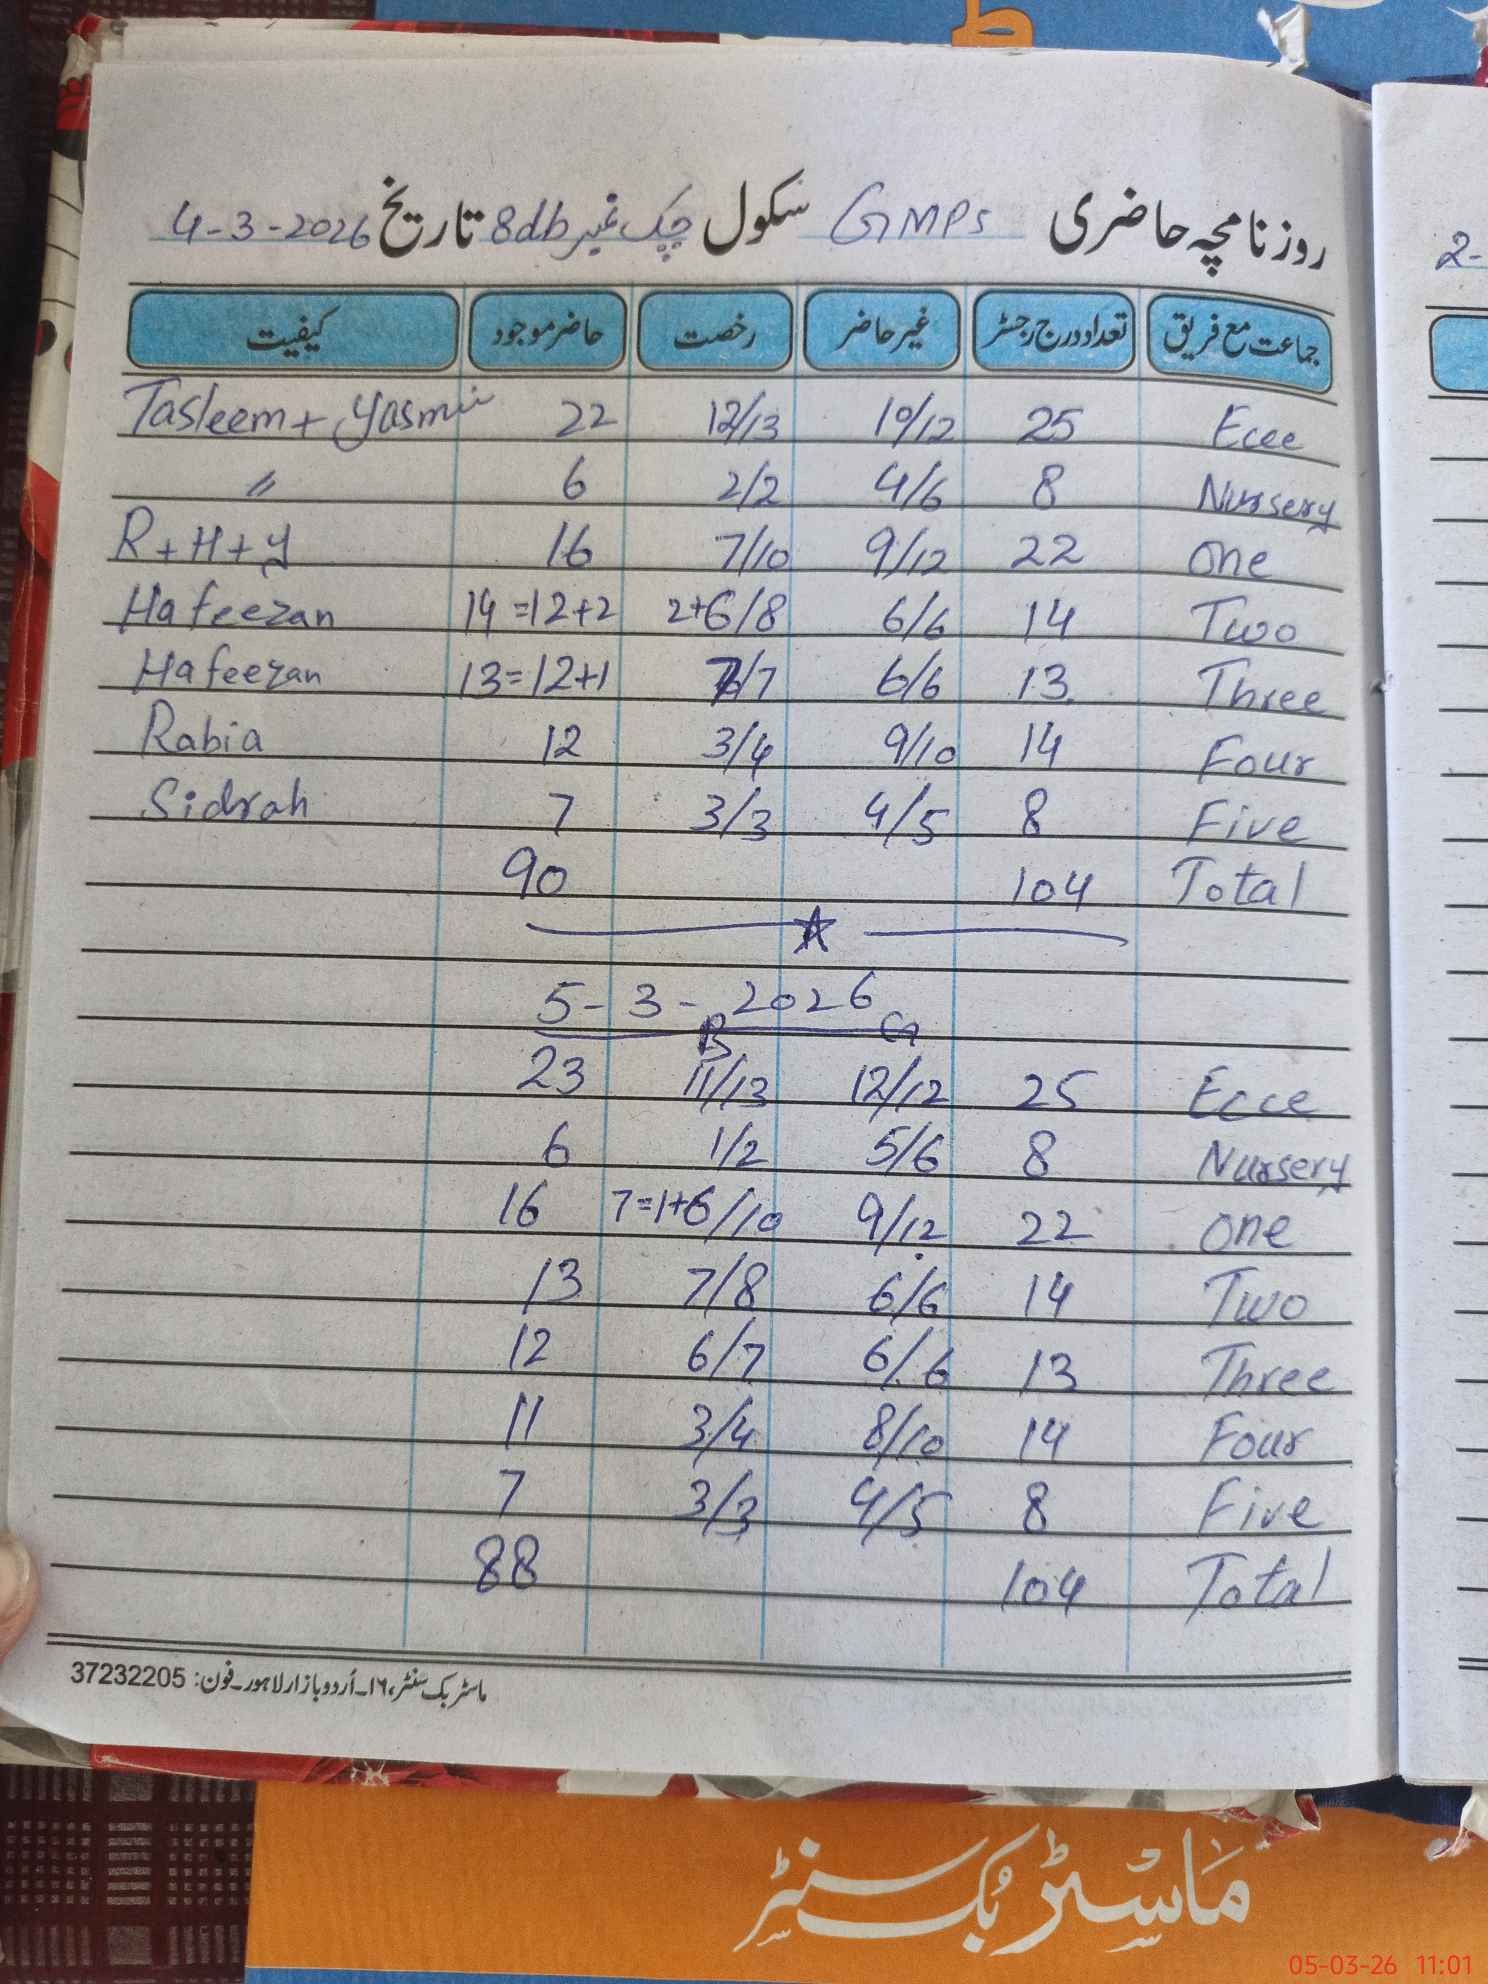 ط
روزنامچہ حاضری GMPS سکول چک نمبر 8db تاریخ 4-3-2026
جماعت مع فریق تعداد درج رجسٹر غیر حاضر رخصت حاضر موجود کیفیت
Ecee 25 10/12 12/13 22 Tasleem + Yasmin
Nursery 8 4/6 2/2 6 "
one 22 9/12 7/10 16 R+H+Y
Two 14 6/6 2+6/8 14=12+2 Hafeezan
Three 13 6/6 7/7 13=12+1 Hafeezan
Four 14 9/10 3/4 12 Rabia
Five 8 4/5 3/3 7 Sidrah
Total 104 90
5-3-2026
G B
Ecce 25 12/12 11/13 23
Nursery 8 5/6 1/2 6
one 22 9/12 7=1+6/10 16
Two 14 6/6 7/8 13
Three 13 6/6 6/7 12
Four 14 8/10 3/4 11
Five 8 4/5 3/3 7
Total 104 88
ماسٹر بک سنٹر، ۱۶۔اُردو بازار لاہور۔فون: 37232205
2-
ماسٹر بُک سنٹر
05-03-26 11:01